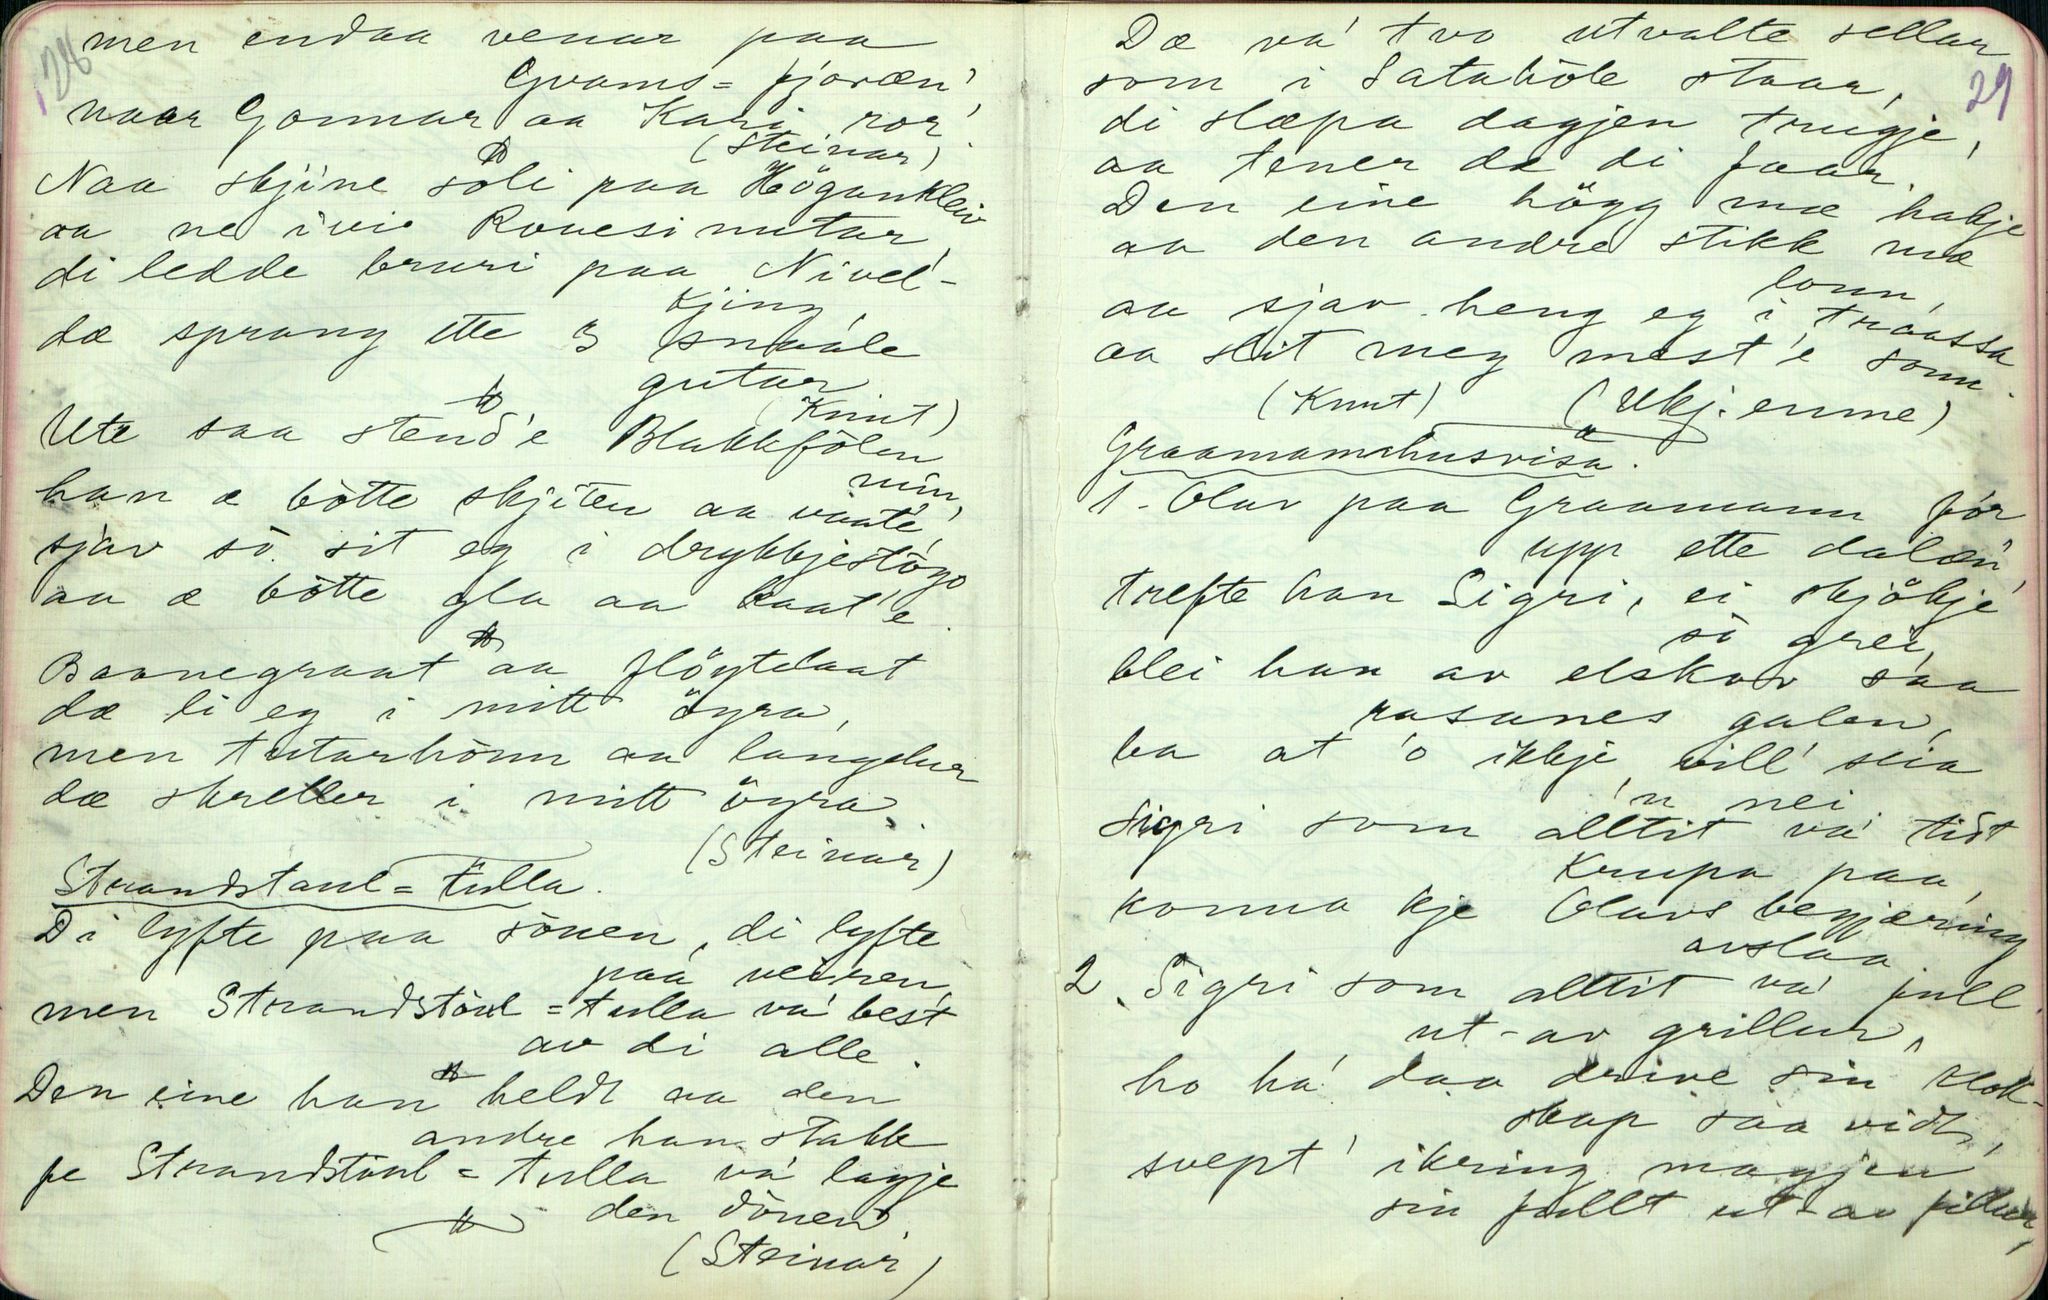 128
men endaa venar paa
Gvams-fjoræn,
naar Gonnar aa Kari ror.
(Steinar)
Naa skjine soli paa Högankleiv
aa ne ivie Rouesinutar,
di ledde bruri paa Nivel-
kjing,
dæ sprang ette 3 snaale
gutar
(Knut)
Ute saa stend'e Blakkfölen
min,
han æ bötte skjiten aa vaate,
sjav so sit eg i drykkjestogo
aa æ bötte gla aa kaat'e.
Baanegraat aa flöytelaat
dæ li eg i mitt öyra,
men tutarhònn aa langelur
dæ skreller i mitt öyra.
(Steinar)
Strandstaul-tulla.
Di lyfte paa sönen, di lyfte
paa veiren,
men Strandstöul-tulla va best
av di alle.
Den eine han heldt aa den
andre han stakk
fe Strandstöul-tulla va' lagje
den dönen.
(Steinar)
29
Dæ va' tvo utvalte sellar
som i Satahòle staar,
di slæpa dagjen trugje,
aa tener dæ di faar.
Den eine högg mæ hakje
aa den andre stikk mæ
lonn,
aa sjav heng eg i traassa
aa slit meg mest'e sonn.
(Knut) (Ukj. emne)
Graamannhusvisa.
1. Olav paa Graamann fór
upp ette dalæn,
trefte han Sigri, ei skjökje
so grei,
blei han av elskov saa
rasanes galen,
ba at 'o ikkje vill' seia
'n nei.
Sigri som alltit va' tidt
krupa paa,
konna kje Olavs begjæring
avslaa
2. Sigri som alltit va' full
ut-av grillur,
ho ha' daa drive sin klok-
skap saa vidt,
svept' ikring magjen
sin fullt ut-av fillur,